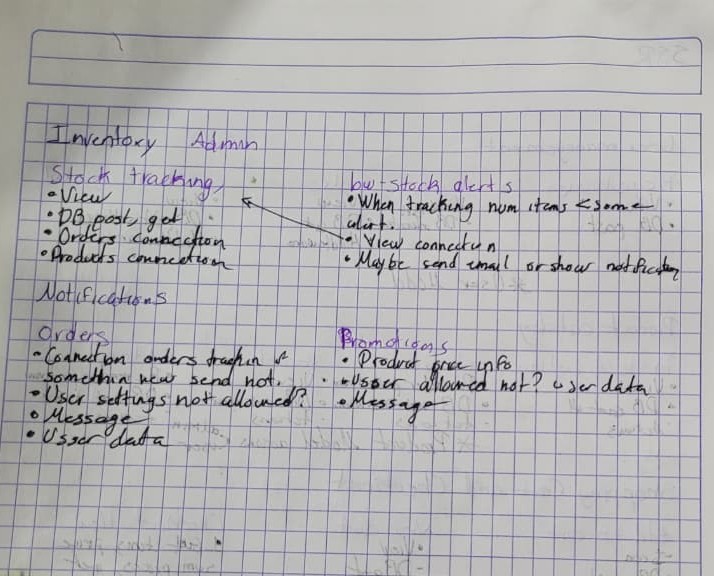 Inventory Admin
Stock tracking
• View
• DB post, get
• Orders connection
• Products connection
low-stock alerts
• When tracking num items < some
alert.
• View connectun
• Maybe send email or show notification
Notifications
Orders
• Connection orders trackin if
somethin new send not.
• User settings not allowed?
• Message
• Usser data
Promotions
• Product price info
• Usser allowed not? user data
• Message